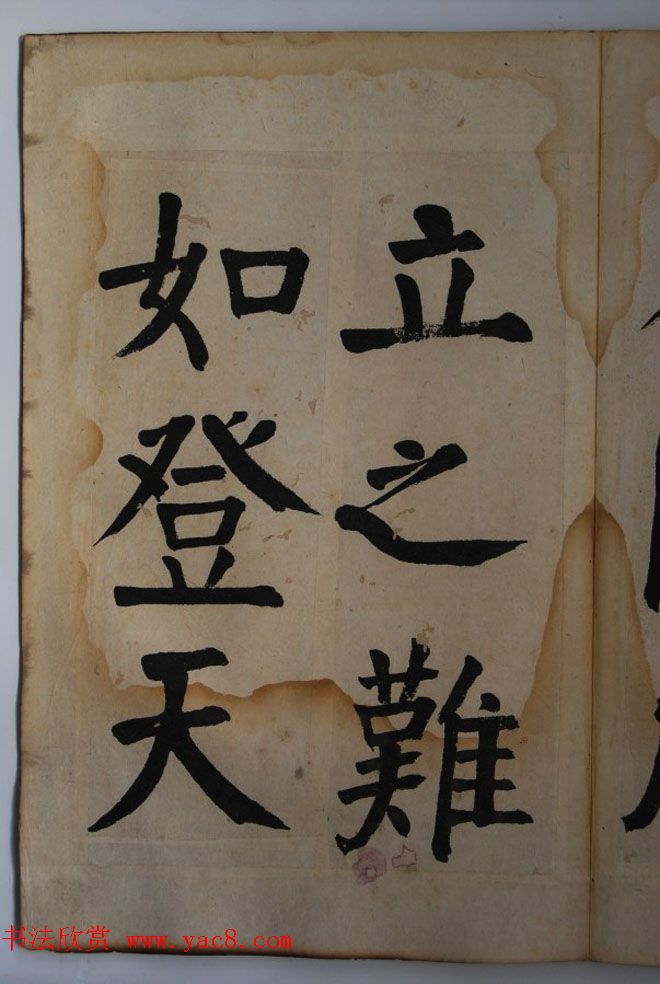 立之難
如登天
书法欣赏 www.yac8.com